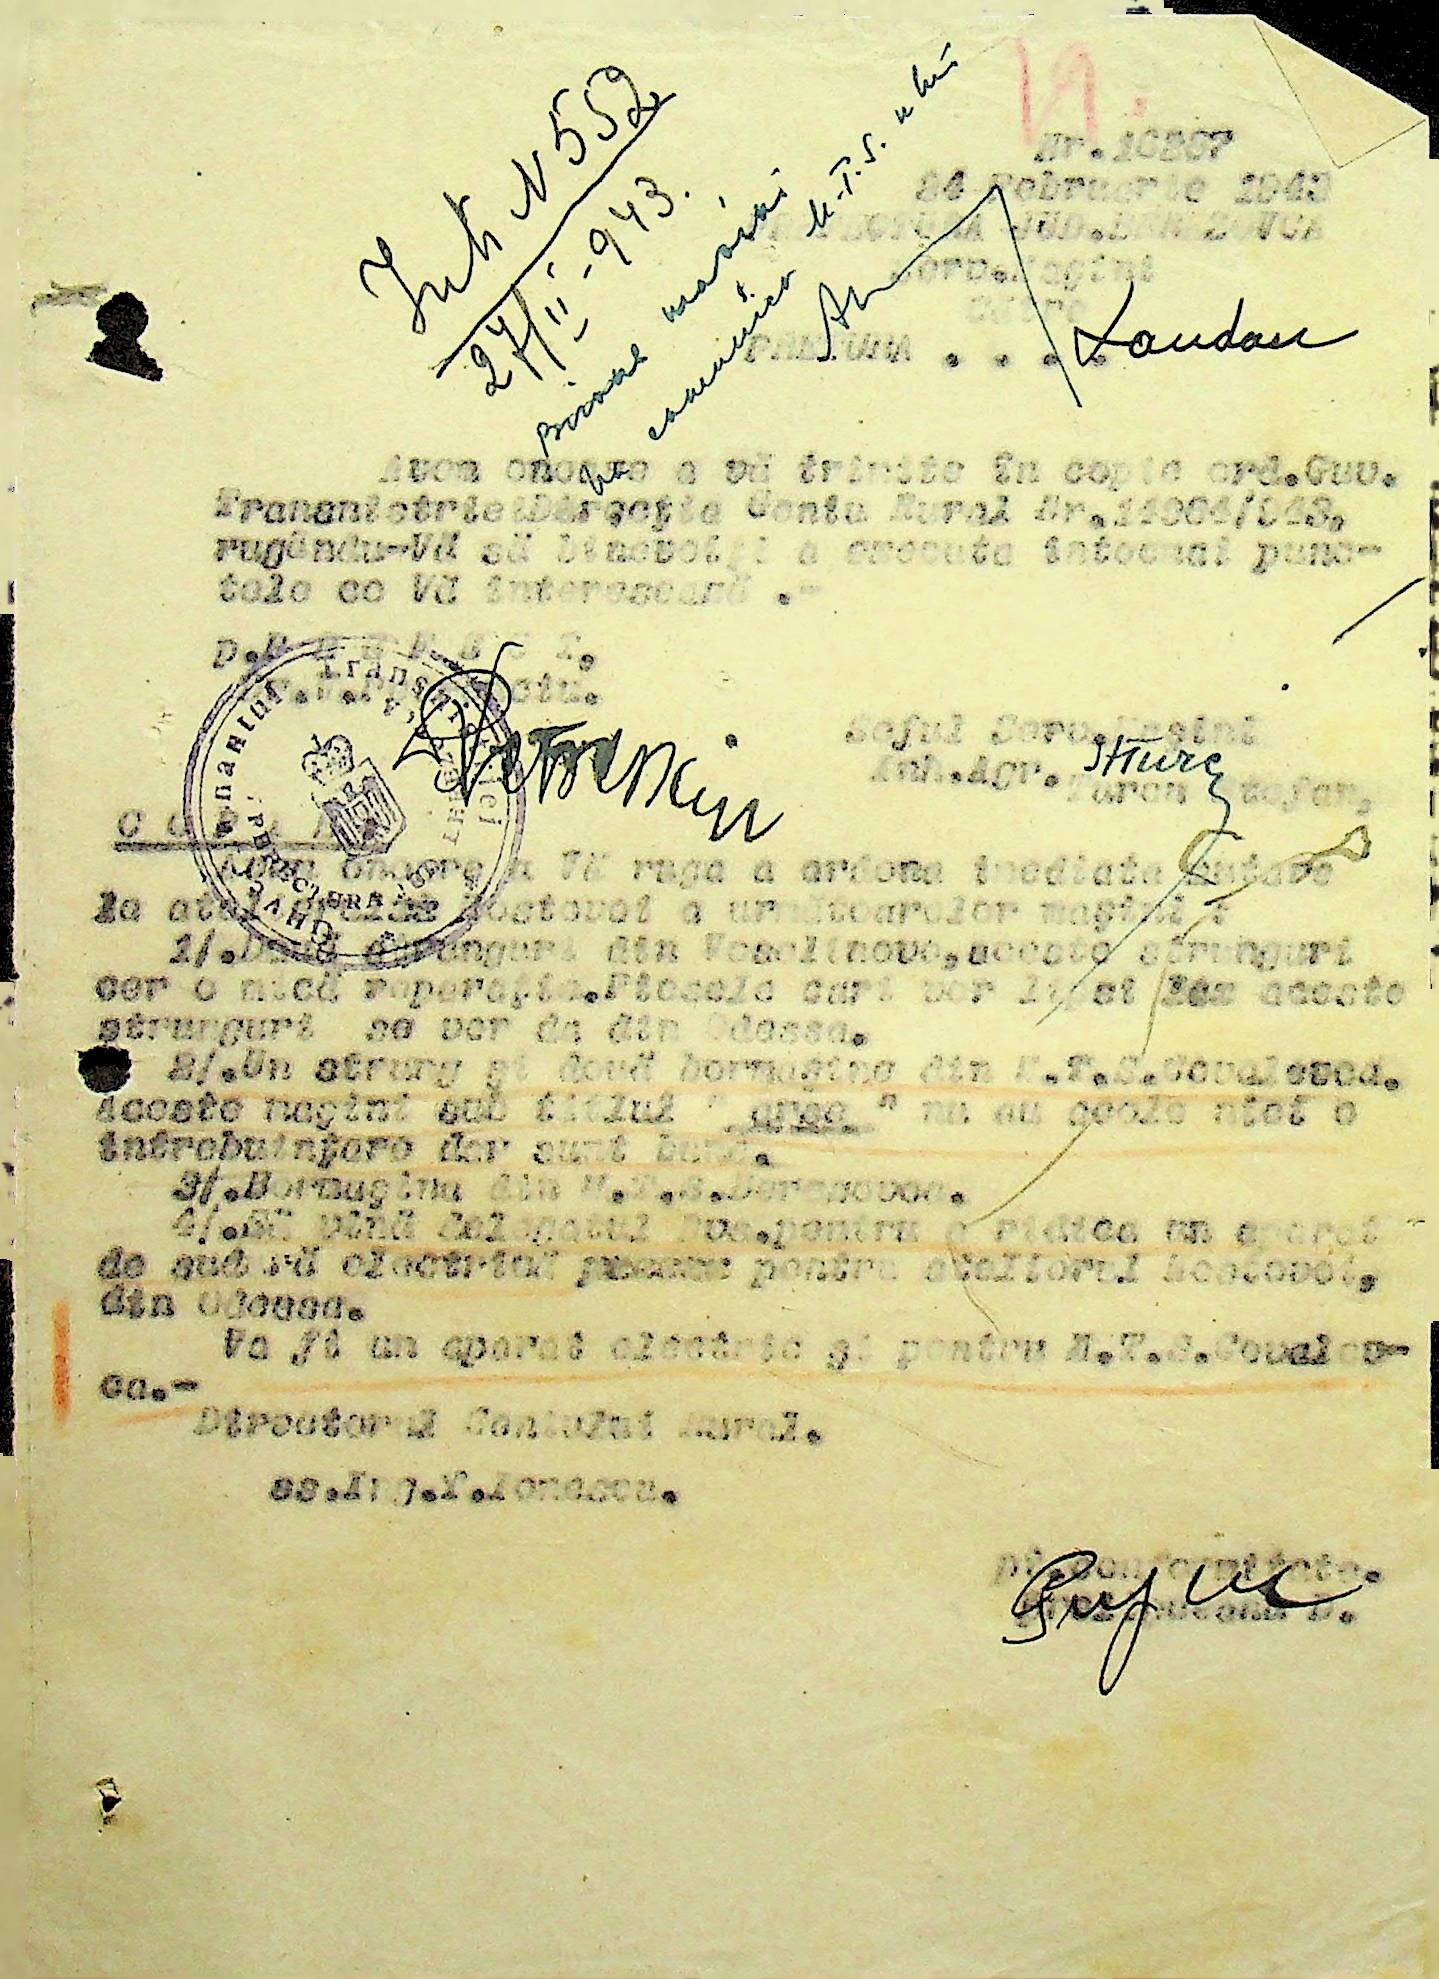 Intr. N 552
27/II-943.
Nr.10267
24 Februarie 1943
PREFECTURA JUD.BEREZOVCA
Serv.Maşini
Către
PRETURA . . . . Landau
Avem onoare a vă trimite în copie ord.Guv.
Transnistriei Direcţia Contu Rural Nr.11964/943,
rugându-Vă să binevoiţi a executa întocmai punc-
tele ce Vă interesează .-
p.P R E F E C T.
Şeful Serv.Maşini
Inh.Agr.
Turcu Ştefan,
C O P I E
Avem onoare a Vă ruga a ordona imediata mutare
la atelierele Mostovoi a următoarelor maşini :
1/.Două strunguri din Veselinovo,aceste strunguri
cer o mică reparaţie.Piesele cari vor lipsi aceste
strunguri se vor da din Odessa.
2/.Un strung şi două bormaşine din M.T.S.Covalevca.
Aceste maşini sub titlul " " nu au acolo nici o
întrebuinţare dar sunt bune.
3/.Bormaşina din M.T.S.Berezovca.
4/.Să vină delegatul Dvs.pentru a ridica un aparat
de sudură electrică pentru atelierul Mostovoi,
din Odessa.
Va fi un aparat electric şi pentru M.T.S.Covalev-
ca.-
Directorul Contului Rural.
ss.Ing.T.Ionescu.
pt.conformitate.